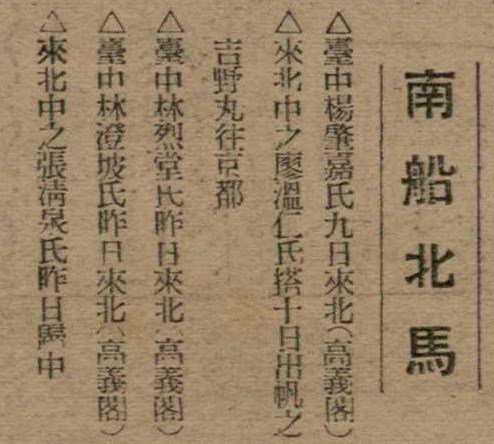 南船北馬
△臺中楊肇嘉氏九日來北(高義閣)
△來北中之廖溫仁氏搭十日出帆之
吉野丸往京都
△臺中林烈堂氏昨日來北(高義閣)
△臺中林澄坡氏昨日來北(高義閣)
△來北中之張清泉氏昨日歸中